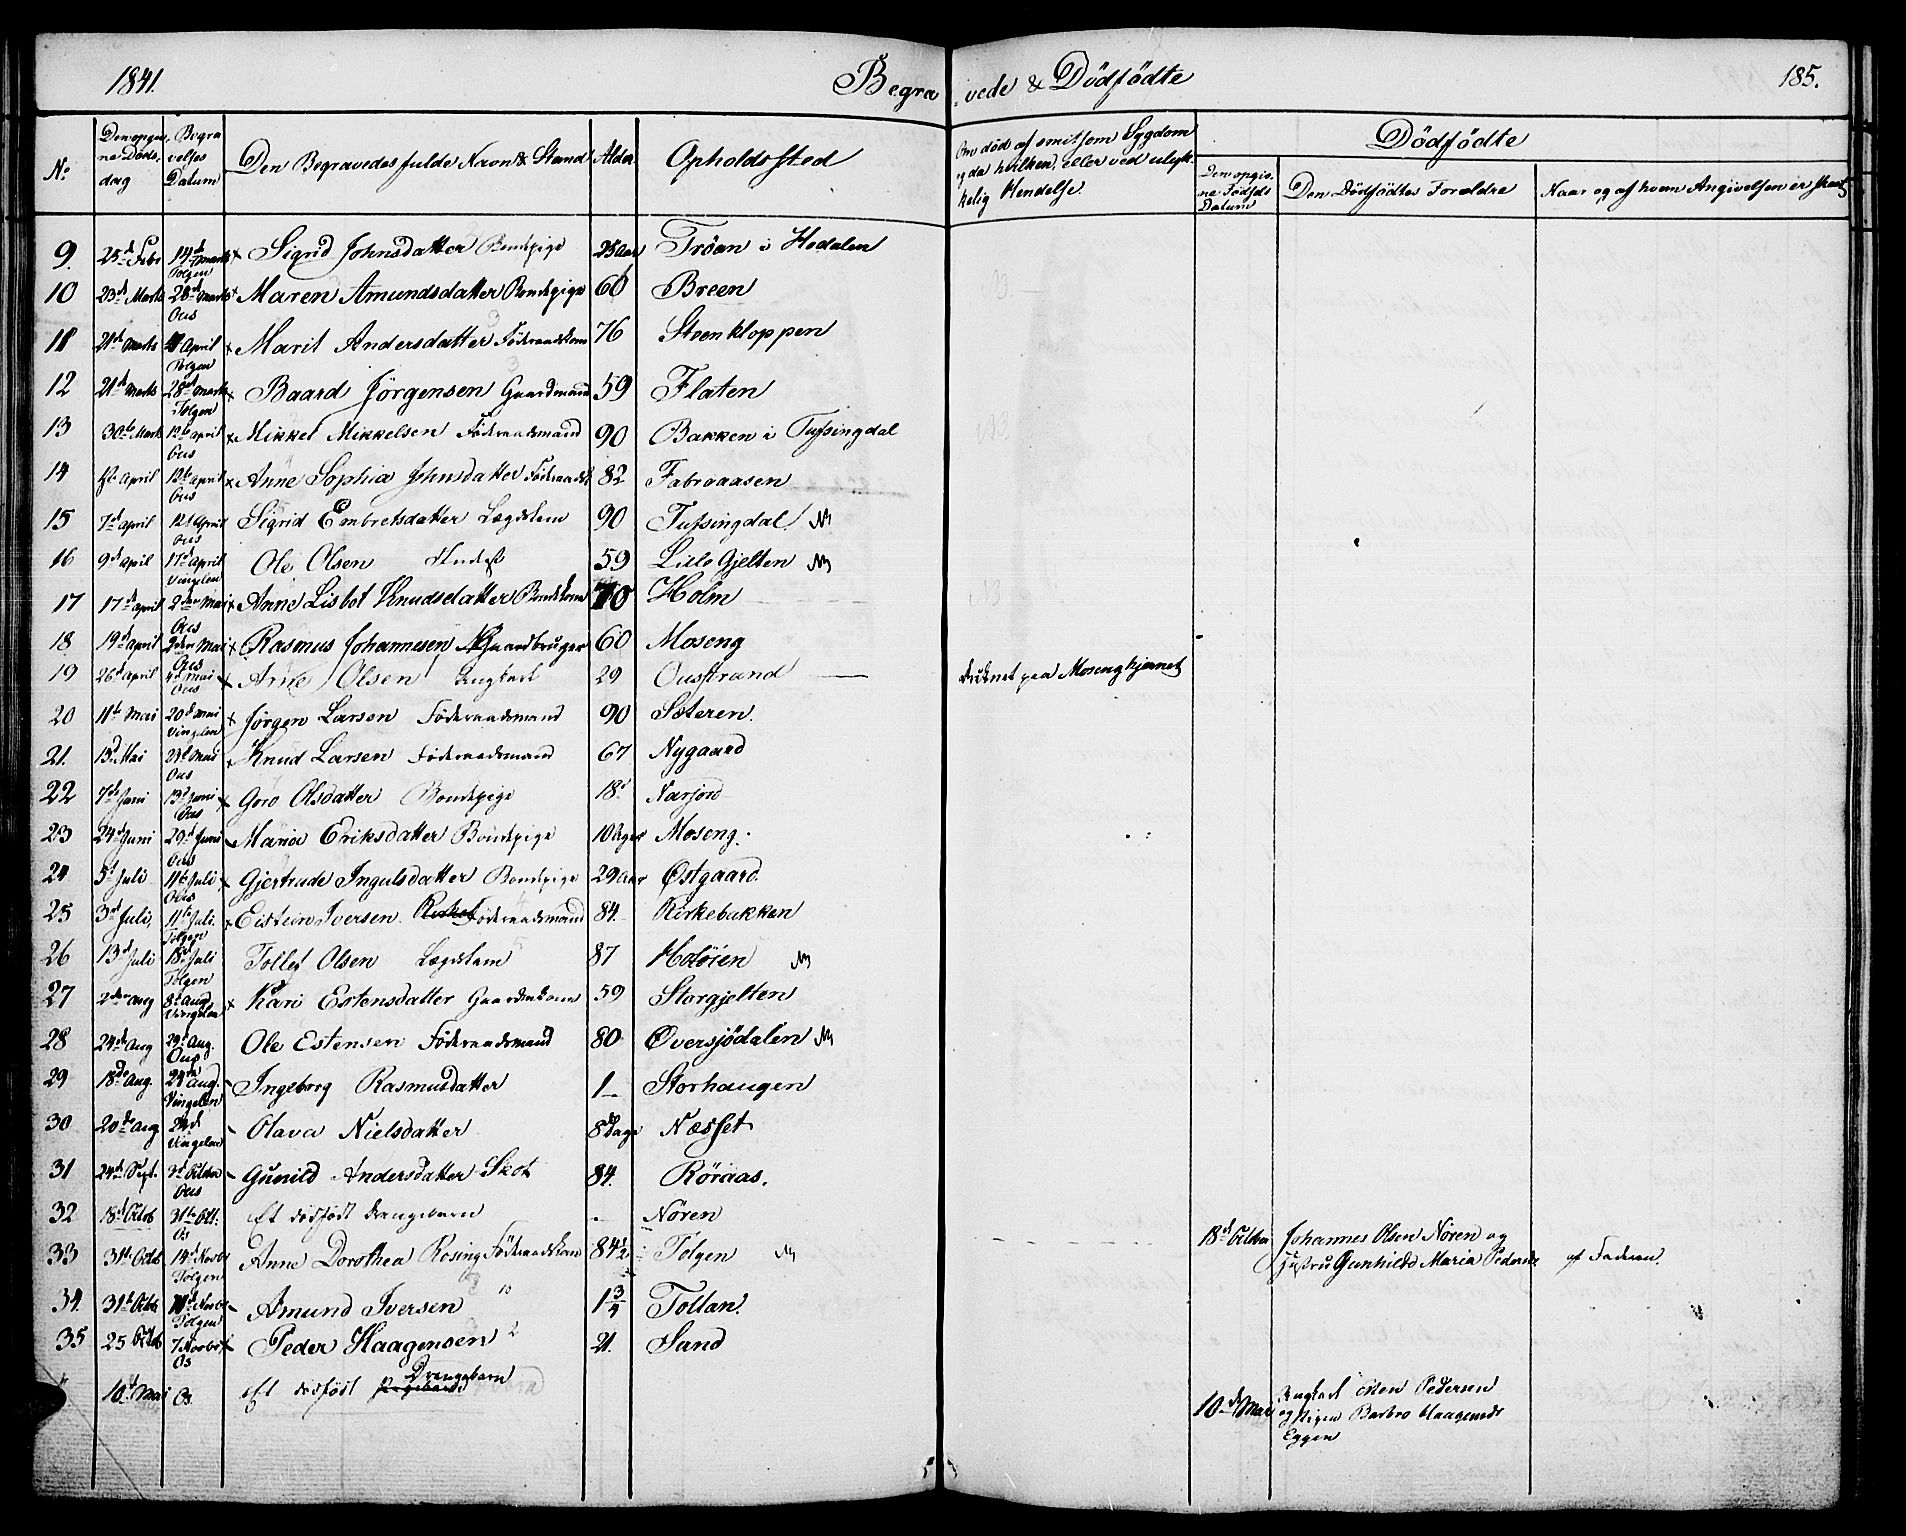 1841.
Begravede & Dödfödte
185.
No
Den opgivne Döds-dag
Begravelses Datum
Den Begravedes fulde Navn & Stand
Alder
Opholdssted
Om död af smitsom Sygdom og da hvilken, eller ved ulykkelig Hendelse.
Dödfödte
Den opgivne Födsels Datum
Den Dödfödtes Forældre
Naar og af hvem Angivelsen er skeet
9. 25d Febr 14d Marts Tolgen Sigrid Johnsdatter Bondepige 25 Aar Tröan i Hodalen
10 23d Marts 28d Marts Ous Maren Amundsdatter Bondepige 60 Breen
11 21d Marts April Tolgen Marit Andersdatter Föderaadskone 76 Steenkloppen
12 21d Marts 28d Marts Tolgen Baard Jörgensen Gaardmand 59 Flaten
13 30te Marts 12te april Ous Mikkel Mikkelsen Föderaadsmand 90 Bakken i Tufsingdal
14 april 12te april Ous Anne Sophia Johnsdatter Föderaadsk 82 Fabroaasen
15 7d april 12t April Ous Sigrid Embretsdatter Lægdslem 90 Tufsingdal
16 9d april 17d april Vingelen Ole Olsen 59 Lille Gjelten
17 17d april 2den Mai Ous Anne Lisbet Knudsdatter Bondekone 70 Holm
18 19d april 2den Mai Ous Rasmus Johannesen Gaardbruger 60 Moseng
19 26d april Mai Ous Arne Olsen Ungkarl 29 Ousstrand druknet paa Mosengtjernet
20 11te Mai 20d Mai Vingelen Jörgen Larsen Föderaadsmand 90 Sæteren.
21. 15d Mai 23d Mai Ous Knud Larsen Föderaadsmand 67 Nygaard
22 7de Juni 13d Juni Ous Goro Olsdatter Bondepige 18 Narjord
23 24d Juni 29d Juni Ous Maria Eriksdatter Bondepige 10 Uger Moseng.
24 5t Juli 11te Juli Ous Gjertrude Ingulsdatter Bondepige 29 Aar Østgaard.
25 3d Juli, 11te Juli. Tolgen Eistein Iversen Föderaadsmand 84. Kirkebakken
26 13d Juli 18d Juli Tolgen Tollef Olsen Lægdslem 87 Holöien
27 2den Aug 8d Aug Vingelen Kari Estensdatter Gaardmkone 59 Storgjelten
28 24de Aug 29d Aug. Ous Ole Estensen Föderaadsmand 80 Øversjödalen
29 18de Aug. 24d Aug. Vingelen Ingeborg Rasmusdatter 1 Storhaugen
30 20de Aug Vingelen Olava Nielsdatter 8 Dage Næsset
31 24d Sept. 3d Oktbr Ous Gunild Andersdatter Skot 84. Röraas.
32 18d Octob 31te Okt. Os Et dödfödt Drengebarn Nören 18d Oktbr Johannes Olsen Nören og Hustru Gunhild Maria Pedersdr af Faderen.
33 31te Octob 14d Novbr Tolgen Anne Dorothea Rosing Föderaadskone 84½ Tolgen
34. 31te Octbr Novbr Tolgen Amund Iversen 1¾ Tollan.
35 25 Octob 7 Novbr Os Peder Haagensen 21. Sand
" 10d Mai Os. Et dödfödt Drengebarn 10de Mai Ungkarl Esten Pedersen og Pigen Barbro Haagensdr Eggen